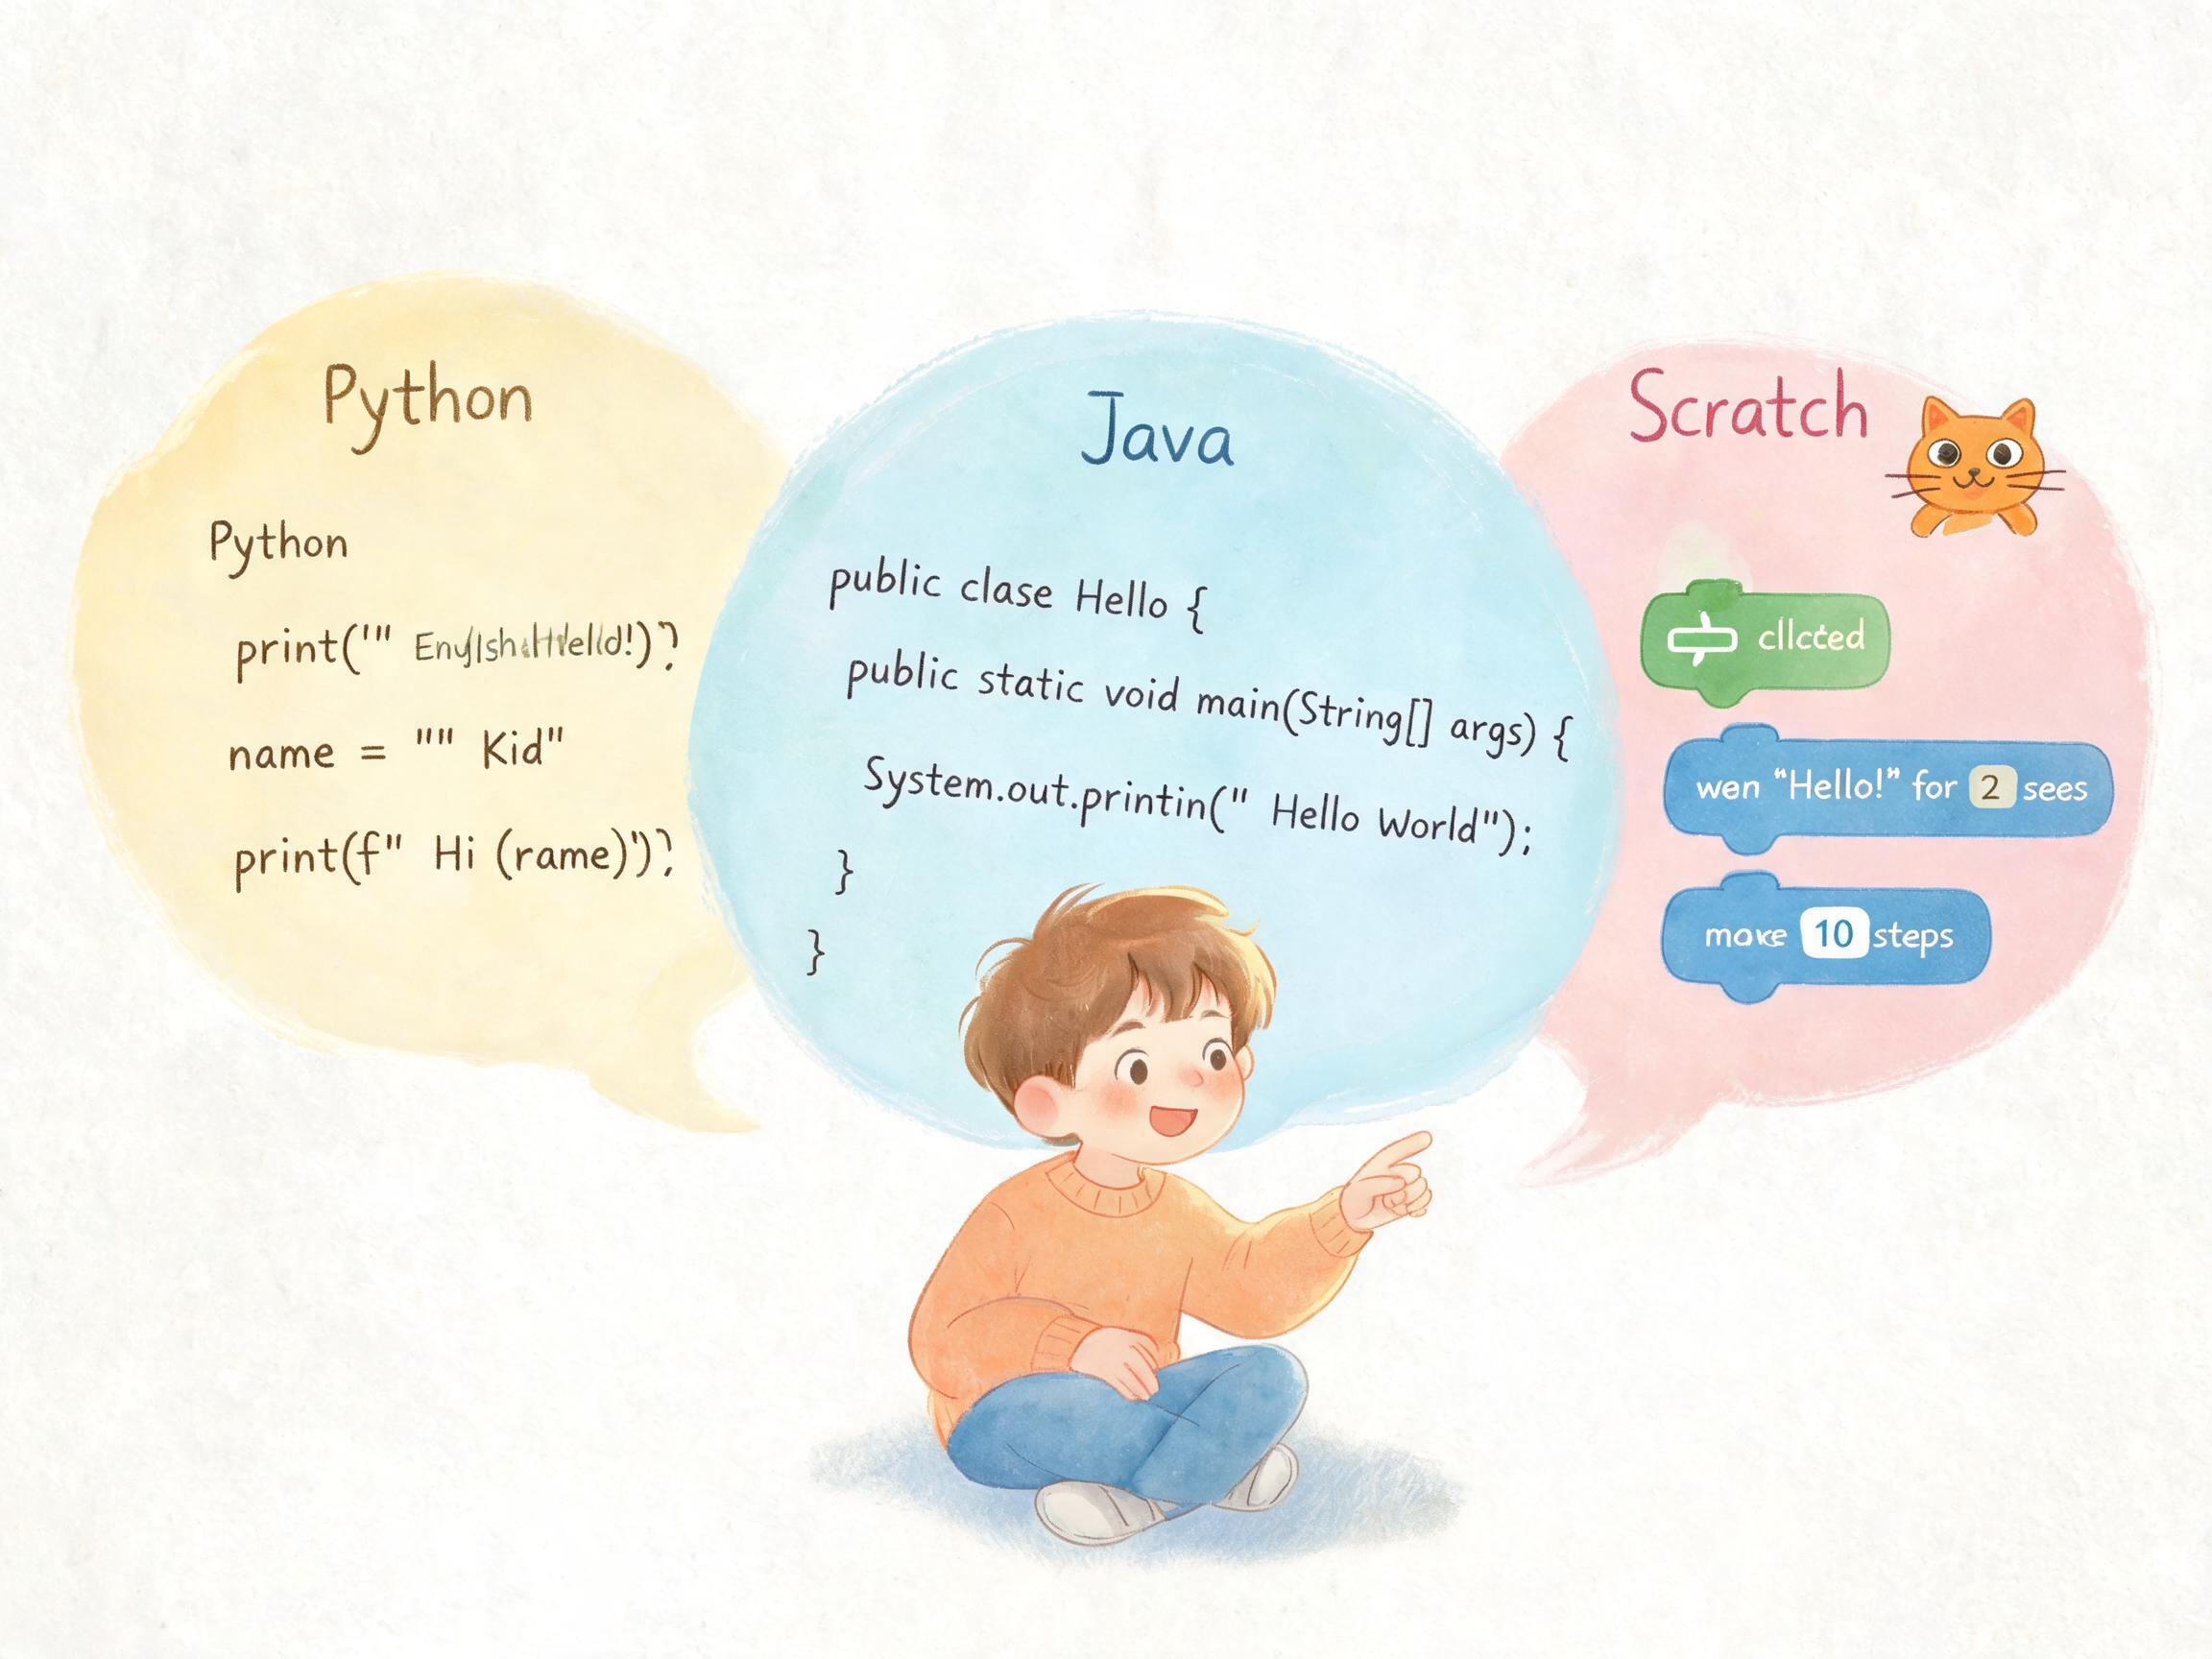 Python
Python
print('"
name = """ Kid"
print(f" Hi (rame)');
Java
public clase Hello {
public static void main(String[] args) {
System.out.printin(" Hello World");
}
}
Scratch
cllcted
wen “Hello!” for 2 sees
move 10 steps